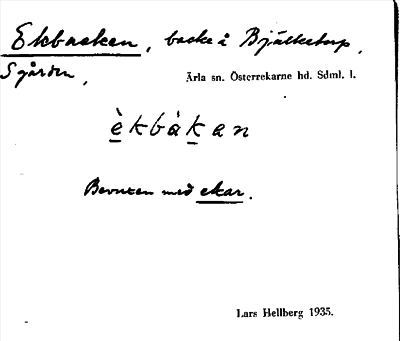 Ekbacken, backe å Bjälketorp,
Sgården,
Ärla sn. Österrekarne hd. Sdml. l.
èkbàkan
Bevuxen med ekar.
Lars Hellberg 1935.